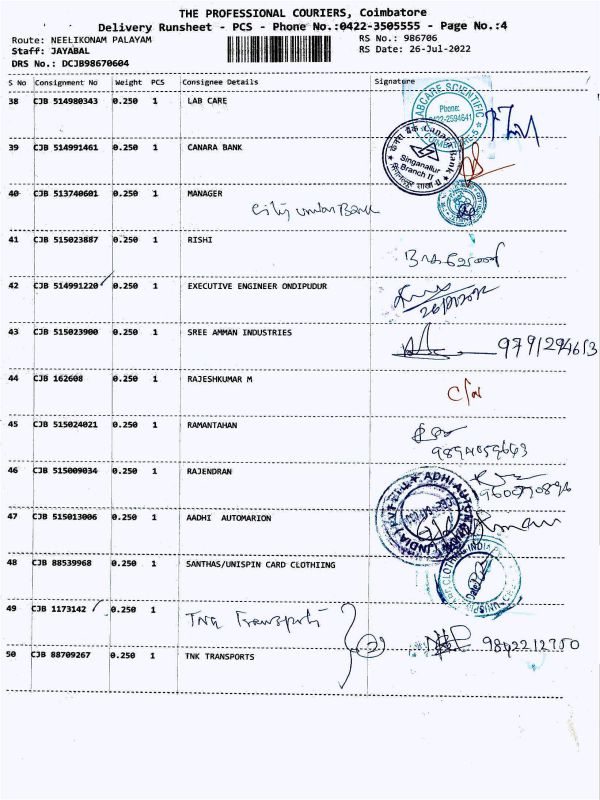 THE PROFESSIONAL COURIERS, Coimbatore
Delivery Runsheet - PCS - Phone No.:0422-3505555 - Page No.:4
Route: NEELIKONAM PALAYAM RS No.: 986706
Staff: JAYABAL RS Date: 26-Jul-2022
DRS No.: DCJB98670604
S No Consignment No Weight PCS Consignee Details Signature
38 CJB 514980343 0.250 1 LAB CARE
Phone:
0422-2594641
39 CJB 514991461 0.250 1 CANARA BANK
Canara Bank
Singanallur
Branch II
40 CJB 513740601 0.250 1 MANAGER
City Union Bank
41 CJB 515023887 0.250 1 RISHI
42 CJB 514991220 0.250 1 EXECUTIVE ENGINEER ONDIPUDUR
43 CJB 515023900 0.250 1 SREE AMMAN INDUSTRIES
44 CJB 162608 0.250 1 RAJESHKUMAR M
45 CJB 515024021 0.250 1 RAMANTAHAN
46 CJB 515009034 0.250 1 RAJENDRAN
47 CJB 515013006 0.250 1 AADHI AUTOMARION
48 CJB 88539968 0.250 1 SANTHAS/UNISPIN CARD CLOTHIING
49 CJB 1173142 0.250 1 TNK Transports
50 CJB 88709267 0.250 1 TNK TRANSPORTS